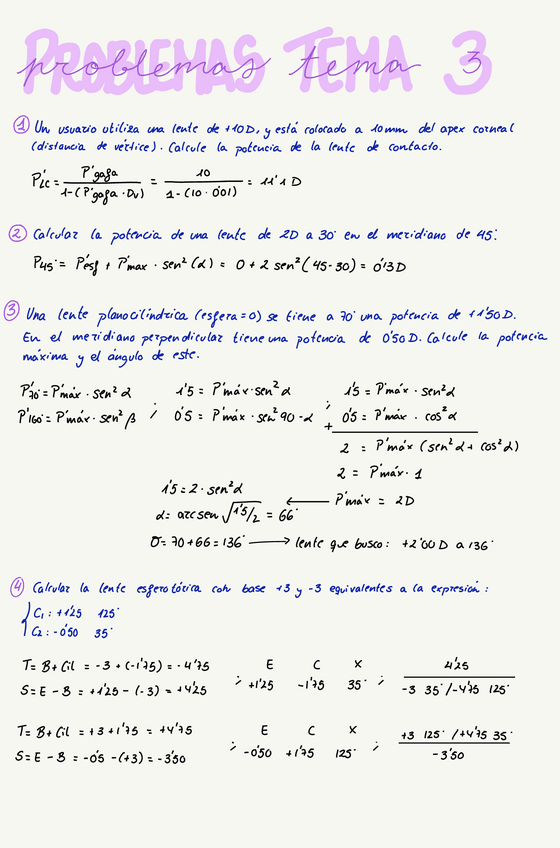 PROBLEMAS TEMA 3
problemas tema 3
① Un usuario utiliza una lente de +10D, y está colocado a 10mm del apex corneal
(distancia de vértice). Calcule la potencia de la lente de contacto.
P'LC = P'gafa / 1-(P'gafa · Dv) = 10 / 1-(10 · 0'01) = 11'1 D
② Calcular la potencia de una lente de 2D a 30° en el meridiano de 45°.
P45° = P'esf + P'max · sen² (α) = 0 + 2 sen² (45-30) = 0'13 D
③ Una lente planocilíndrica (esfera=0) se tiene a 70° una potencia de +1'50 D.
En el meridiano perpendicular tiene una potencia de 0'50 D. Calcule la potencia
máxima y el ángulo de este.
P'70° = P'máx · sen² α ; 1'5 = P'máx · sen² α ; 1'5 = P'máx · sen² α
P'160° = P'máx · sen² β 0'5 = P'máx · sen² 90 - α + 0'5 = P'máx · cos² α
2 = P'máx (sen² α + cos² α)
2 = P'máx · 1
1'5 = 2 · sen² α ← P'máx = 2D
α = arcsen √1'5/2 = 66°
σ = 70 + 66 = 136° → lente que busco: +2'00 D a 136°
④ Calcular la lente esferotórica con base +3 y -3 equivalentes a la expresión:
{ C₁ : +1'25 125°
C₂ : -0'50 35°
T = B + Cil = -3 + (-1'75) = -4'75 ; E C X ; 4'25
S = E - B = +1'25 - (-3) = +4'25 +1'25 -1'75 35° -3 35° / -4'75 125°
T = B + Cil = +3 + 1'75 = +4'75 ; E C X ; +3 125° / +4'75 35°
S = E - B = -0'5 - (+3) = -3'50 -0'50 +1'75 125° -3'50